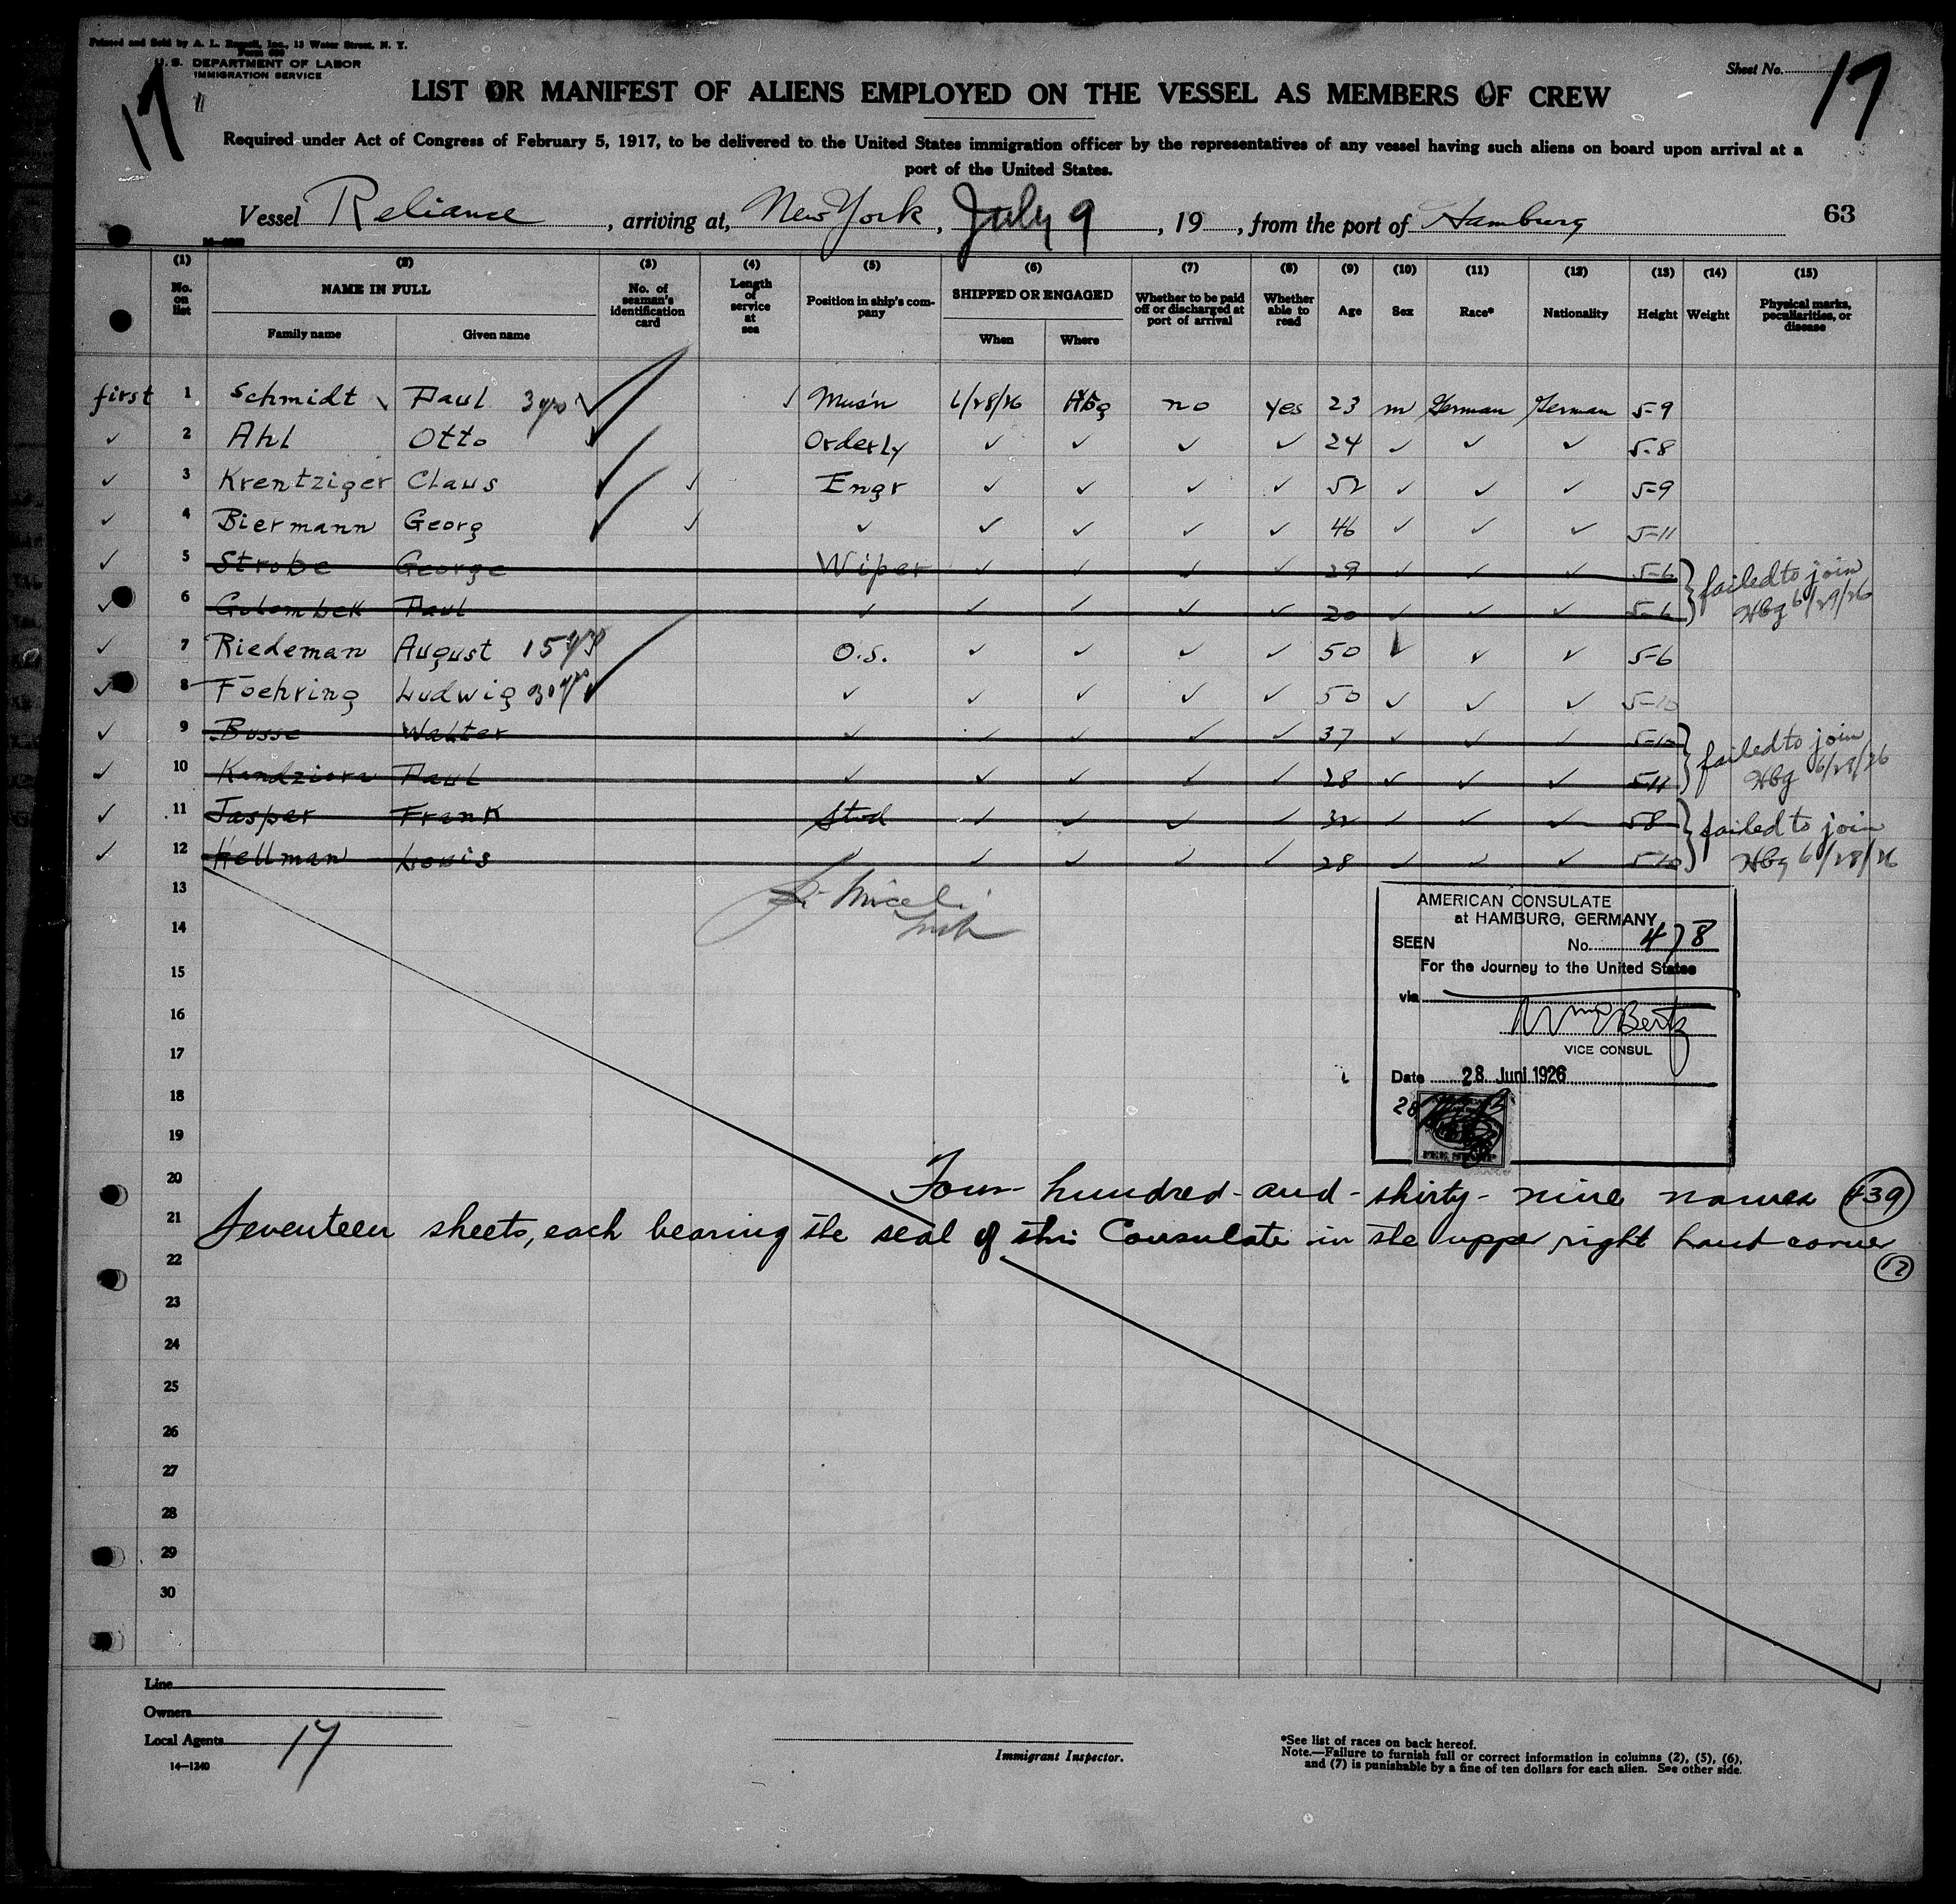 Printed and Sold by A. L. Russell, Inc., 13 Water Street, N. Y.
Form 680
U. S. DEPARTMENT OF LABOR
IMMIGRATION SERVICE
17
Sheet No. 17
LIST OR MANIFEST OF ALIENS EMPLOYED ON THE VESSEL AS MEMBERS OF CREW
Required under Act of Congress of February 5, 1917, to be delivered to the United States immigration officer by the representatives of any vessel having such aliens on board upon arrival at a
port of the United States.
Vessel Reliance, arriving at, New York, July 9, 19 , from the port of Hamburg 63
(1) (2) (3) (4) (5) (6) (7) (8) (9) (10) (11) (12) (13) (14) (15)
No. on list
NAME IN FULL
Family name
Given name
No. of seaman's identification card
Length of service at sea
Position in ship's company
SHIPPED OR ENGAGED
When
Where
Whether to be paid off or discharged at port of arrival
Whether able to read
Age
Sex
Race*
Nationality
Height
Weight
Physical marks, peculiarities, or disease
first 1 Schmidt ✓ Paul 3 yrs ✓ Mus'n 6/28/26 Hbg no yes 23 m German German 5-9
✓ 2 Ahl Otto Orderly ✓ ✓ ✓ ✓ 24 ✓ ✓ ✓ 5-8
✓ 3 Krentziger Claus ✓ Engr ✓ ✓ ✓ ✓ 52 ✓ ✓ ✓ 5-9
✓ 4 Biermann Georg ✓ ✓ ✓ ✓ ✓ ✓ 46 ✓ ✓ ✓ 5-11
✓ 5 Strobe George Wiper ✓ ✓ ✓ ✓ 29 ✓ ✓ ✓ 5-6 failed to join
✓ 6 Golombek Paul ✓ ✓ ✓ ✓ ✓ 20 ✓ ✓ ✓ 5-6 Hbg 6/29/26
✓ 7 Riedeman August 15 yrs O.S. ✓ ✓ ✓ ✓ 50 ✓ ✓ ✓ 5-6
✓ 8 Foehring Ludwig 30 yrs ✓ ✓ ✓ ✓ ✓ 50 ✓ ✓ ✓ 5-10
✓ 9 Busse Walter ✓ ✓ ✓ ✓ ✓ 37 ✓ ✓ ✓ 5-10 failed to join
✓ 10 Kandziora Paul ✓ ✓ ✓ ✓ ✓ 28 ✓ ✓ ✓ 5-11 Hbg 6/28/26
✓ 11 Jasper Frank Stwd ✓ ✓ ✓ ✓ 32 ✓ ✓ ✓ 5-8 failed to join
✓ 12 Hellman Louis ✓ ✓ ✓ ✓ ✓ 28 ✓ ✓ ✓ 5-10 Hbg 6/28/26
13
14
15
16
17
18
19
AMERICAN CONSULATE
at HAMBURG, GERMANY
SEEN No. 478
For the Journey to the United States
via
VICE CONSUL
Date 28 Juni 1926
28
20 Four-hundred-and-thirty-nine names 439
21 Seventeen sheets, each bearing the seal of this Consulate in the upper right hand corner
22 17
23
24
25
26
27
28
29
30
Line
Owners
Local Agents
17
14—1240
Immigrant Inspector.
*See list of races on back hereof.
Note.—Failure to furnish full or correct information in columns (2), (5), (6),
and (7) is punishable by a fine of ten dollars for each alien. See other side.